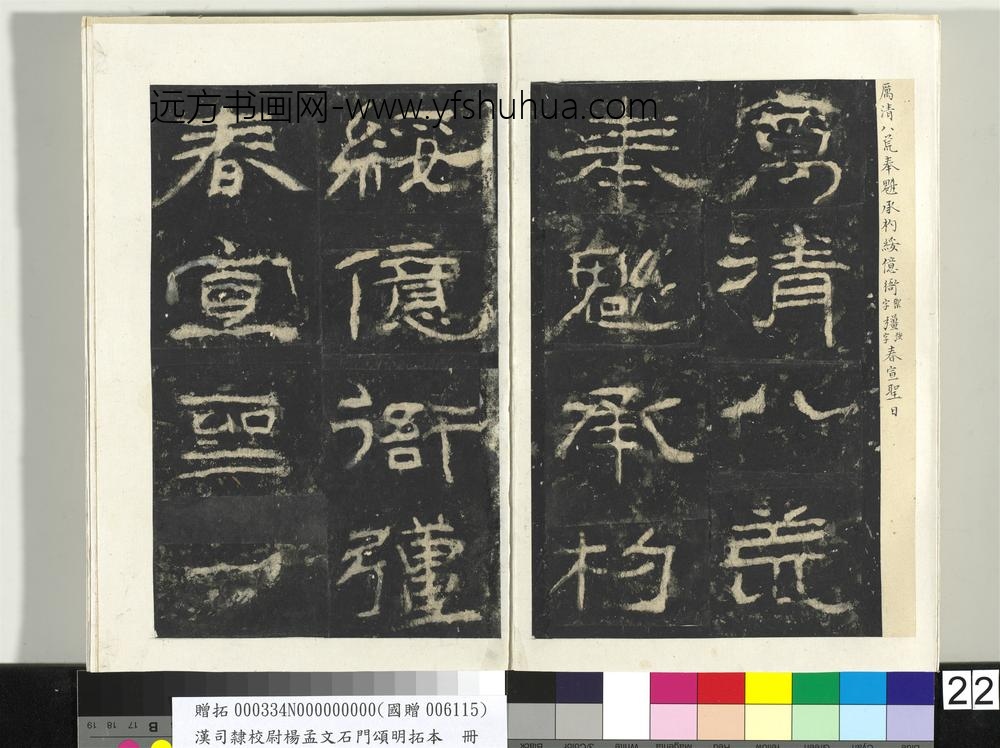 厲清八荒奉魁承杓綏億衙禦字彊強字春宣聖日
厲清八荒
奉魁承杓
綏億衙彊
春宣聖
远方书画网-www.yfshuhua.com
22
贈拓 000334N000000000(國贈 006115)
漢司隸校尉楊孟文石門頌明拓本 冊
19 18 17 B
Black 3/Color White Magenta Red Yellow Green Cyan Blue